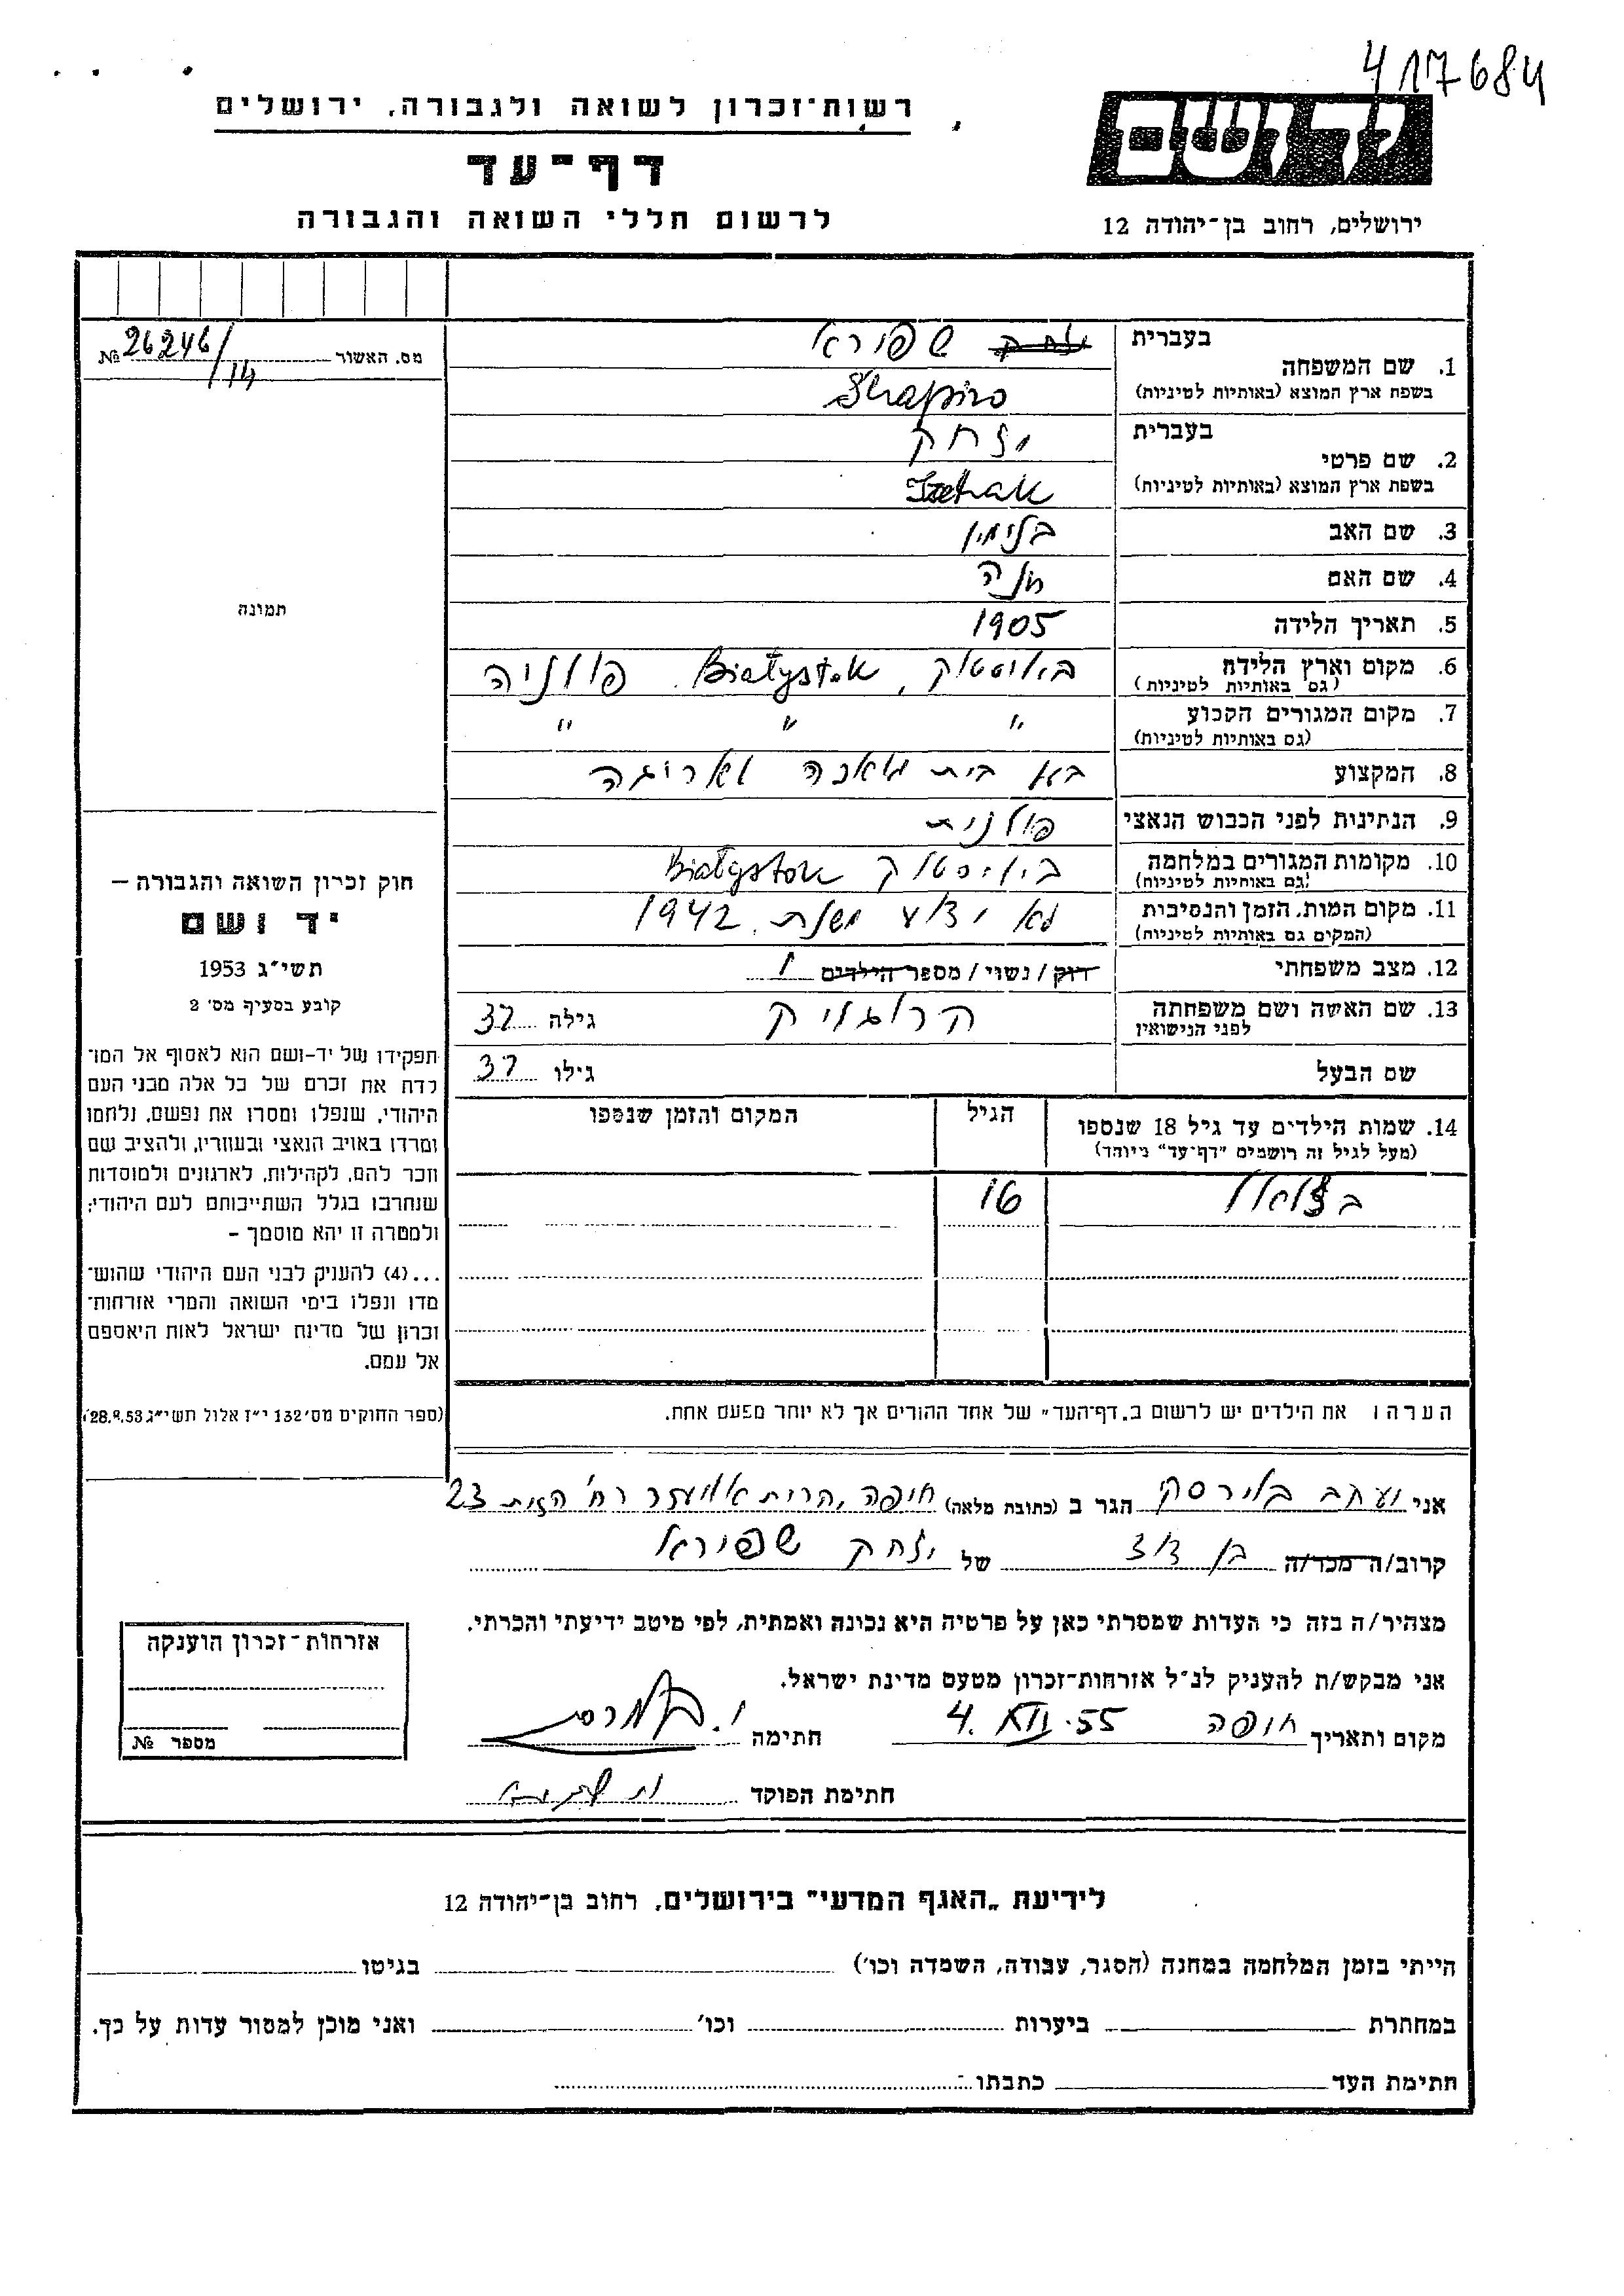 417684
רשות־זכרון לשואה ולגבורה, ירושלים
דף־עד
לרשום חללי השואה והגבורה
יד ושם
ירושלים, רחוב בן־יהודה 12
מס. האשור 26246/14 №
תמונה
1. שם המשפחה
בעברית שפירא
בשפת ארץ המוצא (באותיות לטיניות) Shapiro
2. שם פרטי
בעברית יצחק
בשפת ארץ המוצא (באותיות לטיניות) Izchak
3. שם האב בנימין
4. שם האם חנה
5. תאריך הלידה 1905
6. מקום וארץ הלידה ביאליסטוק, Białystok פולניה
(גם באותיות לטיניות)
7. מקום המגורים הקבוע " " "
(גם באותיות לטיניות)
8. המקצוע בע בית מלאכה לאריגה
9. הנתינות לפני הכבוש הנאצי פולנית
10. מקומות המגורים במלחמה ביאליסטוק Białystok
(גם באותיות לטיניות)
11. מקום המות, הזמן והנסיבות לא ידוע משנת 1942
(המקום גם באותיות לטיניות)
12. מצב משפחתי רוק / נשוי / מספר הילדים 1
13. שם האשה ושם משפחתה גילה 37
לפני הנישואין
שם הבעל גילו 37
14. שמות הילדים עד גיל 18 שנספו הגיל המקום והזמן שנספו
(מעל לגיל זה רושמים "דף־עד" מיוחד)
בצלאל 16
הערה: את הילדים יש לרשום ב„דף־העד" של אחד ההורים אך לא יותר מפעם אחת.
חוק זכרון השואה והגבורה –
יד ושם
תשי״ג 1953
קובע בסעיף מס׳ 2
תפקידו של יד־ושם הוא לאסוף אל המו־
לדת את זכרם של כל אלה מבני העם
היהודי, שנפלו ומסרו את נפשם, נלחמו
ומרדו באויב הנאצי ובעוזריו, ולהציב שם
וזכר להם, לקהילות, לארגונים ולמוסדות
שנחרבו בגלל השתייכותם לעם היהודי;
ולמטרה זו יהא מוסמך –
...(4) להעניק לבני העם היהודי שהוש־
מדו ונפלו בימי השואה והמרי אזרחות־
זכרון של מדינת ישראל לאות היאספם
אל עמם.
(ספר החוקים מס׳ 132 י״ז אלול תשי״ג 28.8.53)
אני יעקב הגר ב (כתובת מלאה) חיפה, קרית אליעזר רח׳ 23
קרוב/ה מכר/ה בן דוד של יצחק שפירא
מצהיר/ה בזה כי העדות שמסרתי כאן על פרטיה היא נכונה ואמתית, לפי מיטב ידיעתי והכרתי.
אני מבקש/ת להעניק לנ״ל אזרחות־זכרון מטעם מדינת ישראל.
מקום ותאריך חיפה 4. XII. 55 חתימה
חתימת הפוקד
אזרחות־זכרון הוענקה
מספר №
לידיעת „האגף המדעי" בירושלים, רחוב בן־יהודה 12
הייתי בזמן המלחמה במחנה (הסגר, עבודה, השמדה וכו׳) בגיטו
במחתרת ביערות וכו׳ ואני מוכן למסור עדות על כך.
חתימת העד כתבתו